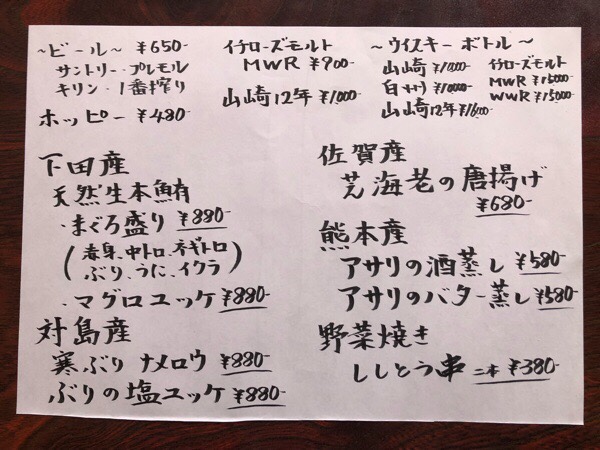 ~ビール~ ¥650-
サントリー・プレモル
キリン・1番搾り
ホッピー ¥480-
イチローズモルト
MWR ¥900-
山崎12年 ¥1000-
~ウイスキー ボトル~
山崎 ¥10000-
白州 ¥10000-
山崎12年 ¥16000-
イチローズモルト
MWR ¥15000-
WWR ¥15000-
下田産
天然生本鮪
・まぐろ盛り ¥880-
(赤身、中トロ、ネギトロ
ぶり、うに、イクラ)
・マグロユッケ ¥880-
対島産
寒ぶり ナメロウ ¥880-
ぶりの塩ユッケ ¥880-
佐賀産
芝海老の唐揚げ
¥680-
熊本産
アサリの酒蒸し ¥580-
アサリのバター蒸し ¥580-
野菜焼き
ししとう串 二本 ¥380-